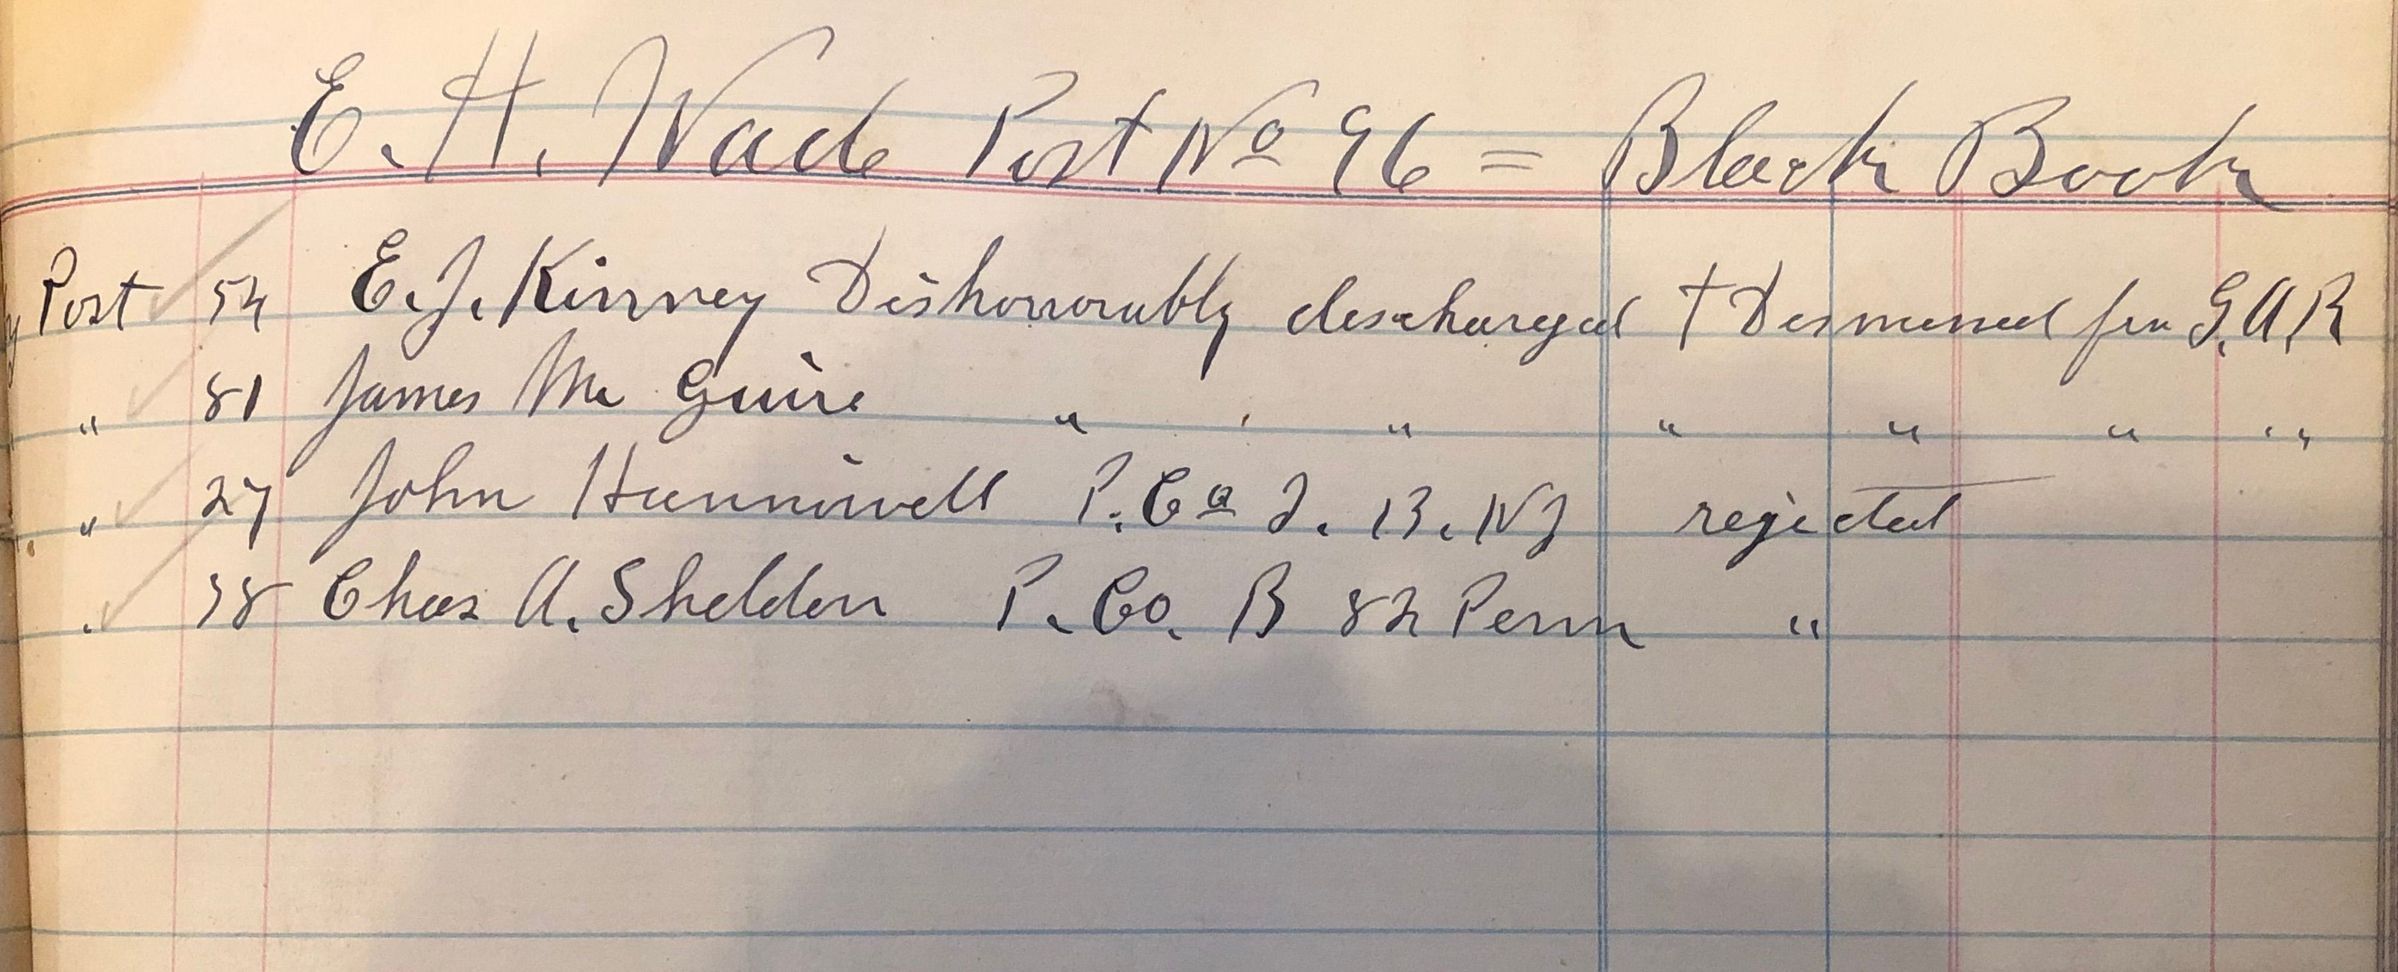 E. H. Wade Post No 96 = Black Book
Post 54 E. J. Kinney Dishonorably discharged † Dismissed frm G.A.R
" 81 James Mc Guire " " " " " " "
" 27 John Hunniwell P. Co I. 13. NJ rejected
" 38 Chas A. Sheldon P. Co. B 82 Penn "